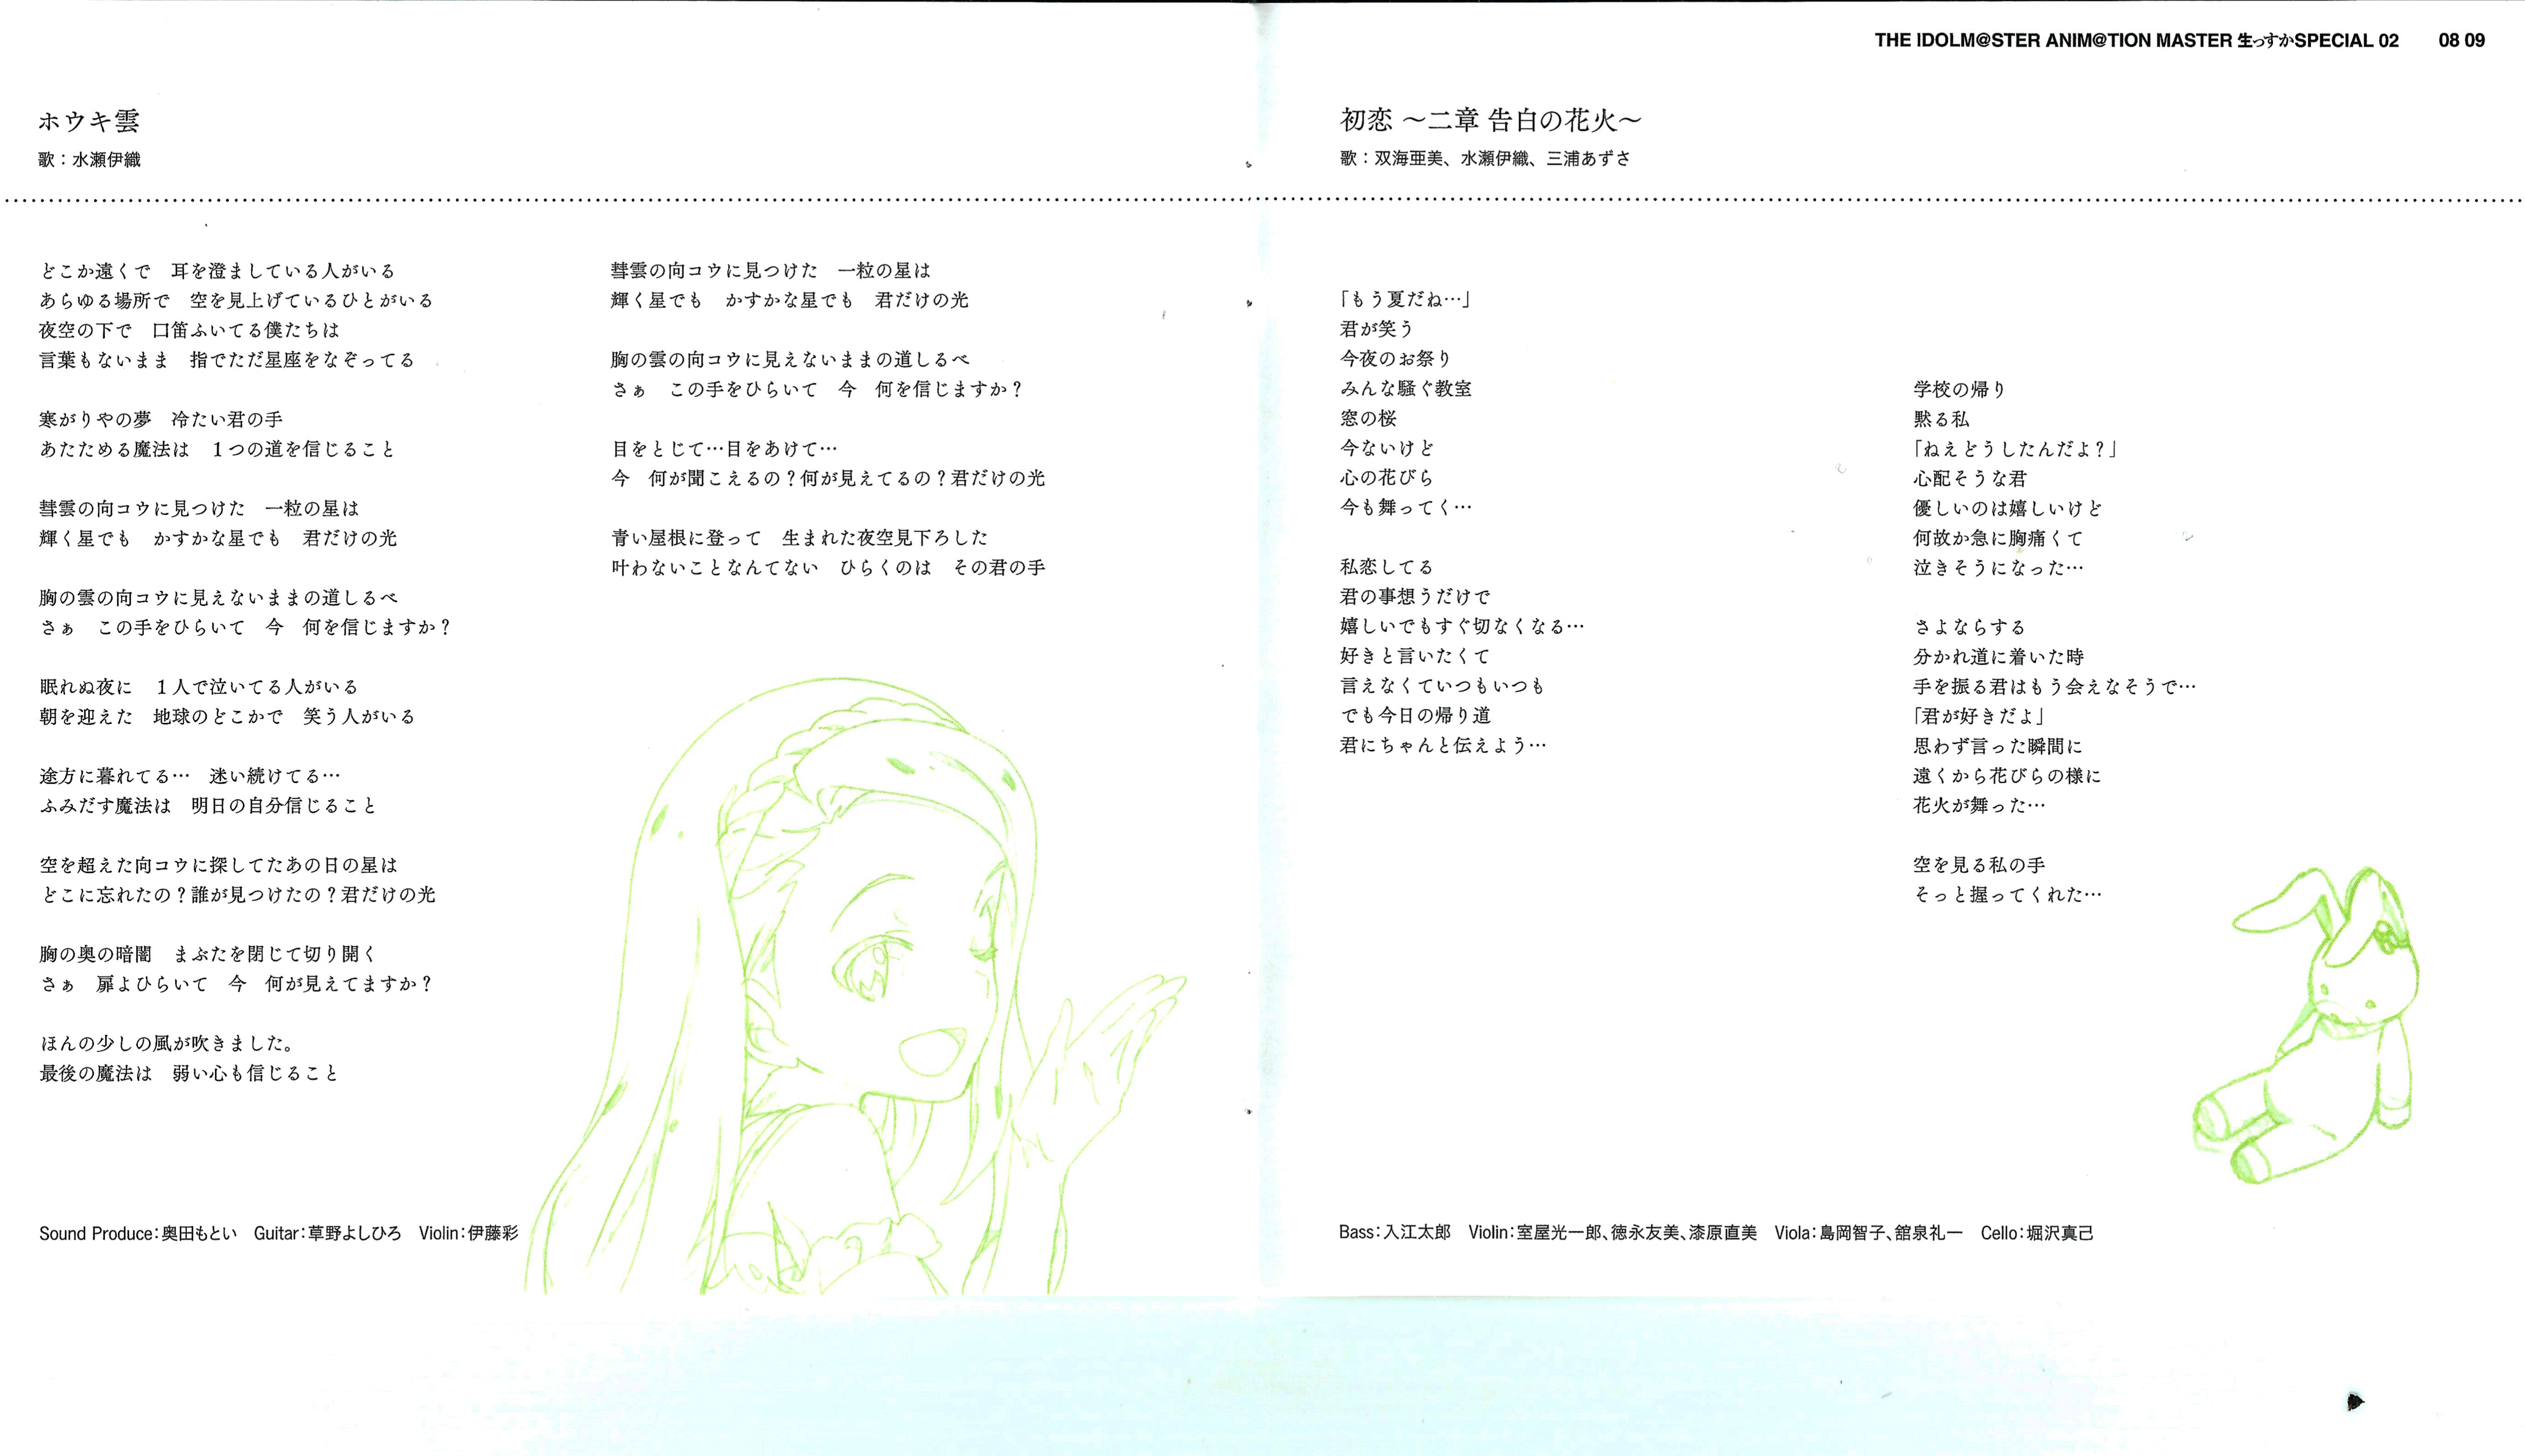 THE IDOLM@STER ANIM@TION MASTER 生っすかSPECIAL 02　08 09
ホウキ雲
歌：水瀬伊織
どこか遠くで　耳を澄ましている人がいる
あらゆる場所で　空を見上げているひとがいる
夜空の下で　口笛ふいてる僕たちは
言葉もないまま　指でただ星座をなぞってる
寒がりやの夢　冷たい君の手
あたためる魔法は　１つの道を信じること
彗雲の向コウに見つけた　一粒の星は
輝く星でも　かすかな星でも　君だけの光
胸の雲の向コウに見えないままの道しるべ
さぁ　この手をひらいて　今　何を信じますか？
眠れぬ夜に　１人で泣いてる人がいる
朝を迎えた　地球のどこかで　笑う人がいる
途方に暮れてる…　迷い続けてる…
ふみだす魔法は　明日の自分信じること
空を超えた向コウに探してたあの日の星は
どこに忘れたの？誰が見つけたの？君だけの光
胸の奥の暗闇　まぶたを閉じて切り開く
さぁ　扉よひらいて　今　何が見えてますか？
ほんの少しの風が吹きました。
最後の魔法は　弱い心も信じること
彗雲の向コウに見つけた　一粒の星は
輝く星でも　かすかな星でも　君だけの光
胸の雲の向コウに見えないままの道しるべ
さぁ　この手をひらいて　今　何を信じますか？
目をとじて…目をあけて…
今　何が聞こえるの？何が見えてるの？君だけの光
青い屋根に登って　生まれた夜空見下ろした
叶わないことなんてない　ひらくのは　その君の手
Sound Produce：奥田もとい　Guitar：草野よしひろ　Violin：伊藤彩
初恋 〜二章 告白の花火〜
歌：双海亜美、水瀬伊織、三浦あずさ
「もう夏だね…」
君が笑う
今夜のお祭り
みんな騒ぐ教室
窓の桜
今ないけど
心の花びら
今も舞ってく…
私恋してる
君の事想うだけで
嬉しいでもすぐ切なくなる…
好きと言いたくて
言えなくていつもいつも
でも今日の帰り道
君にちゃんと伝えよう…
学校の帰り
黙る私
「ねえどうしたんだよ？」
心配そうな君
優しいのは嬉しいけど
何故か急に胸痛くて
泣きそうになった…
さよならする
分かれ道に着いた時
手を振る君はもう会えなそうで…
「君が好きだよ」
思わず言った瞬間に
遠くから花びらの様に
花火が舞った…
空を見る私の手
そっと握ってくれた…
Bass：入江太郎　Violin：室屋光一郎、徳永友美、漆原直美　Viola：島岡智子、舘泉礼一　Cello：堀沢真己